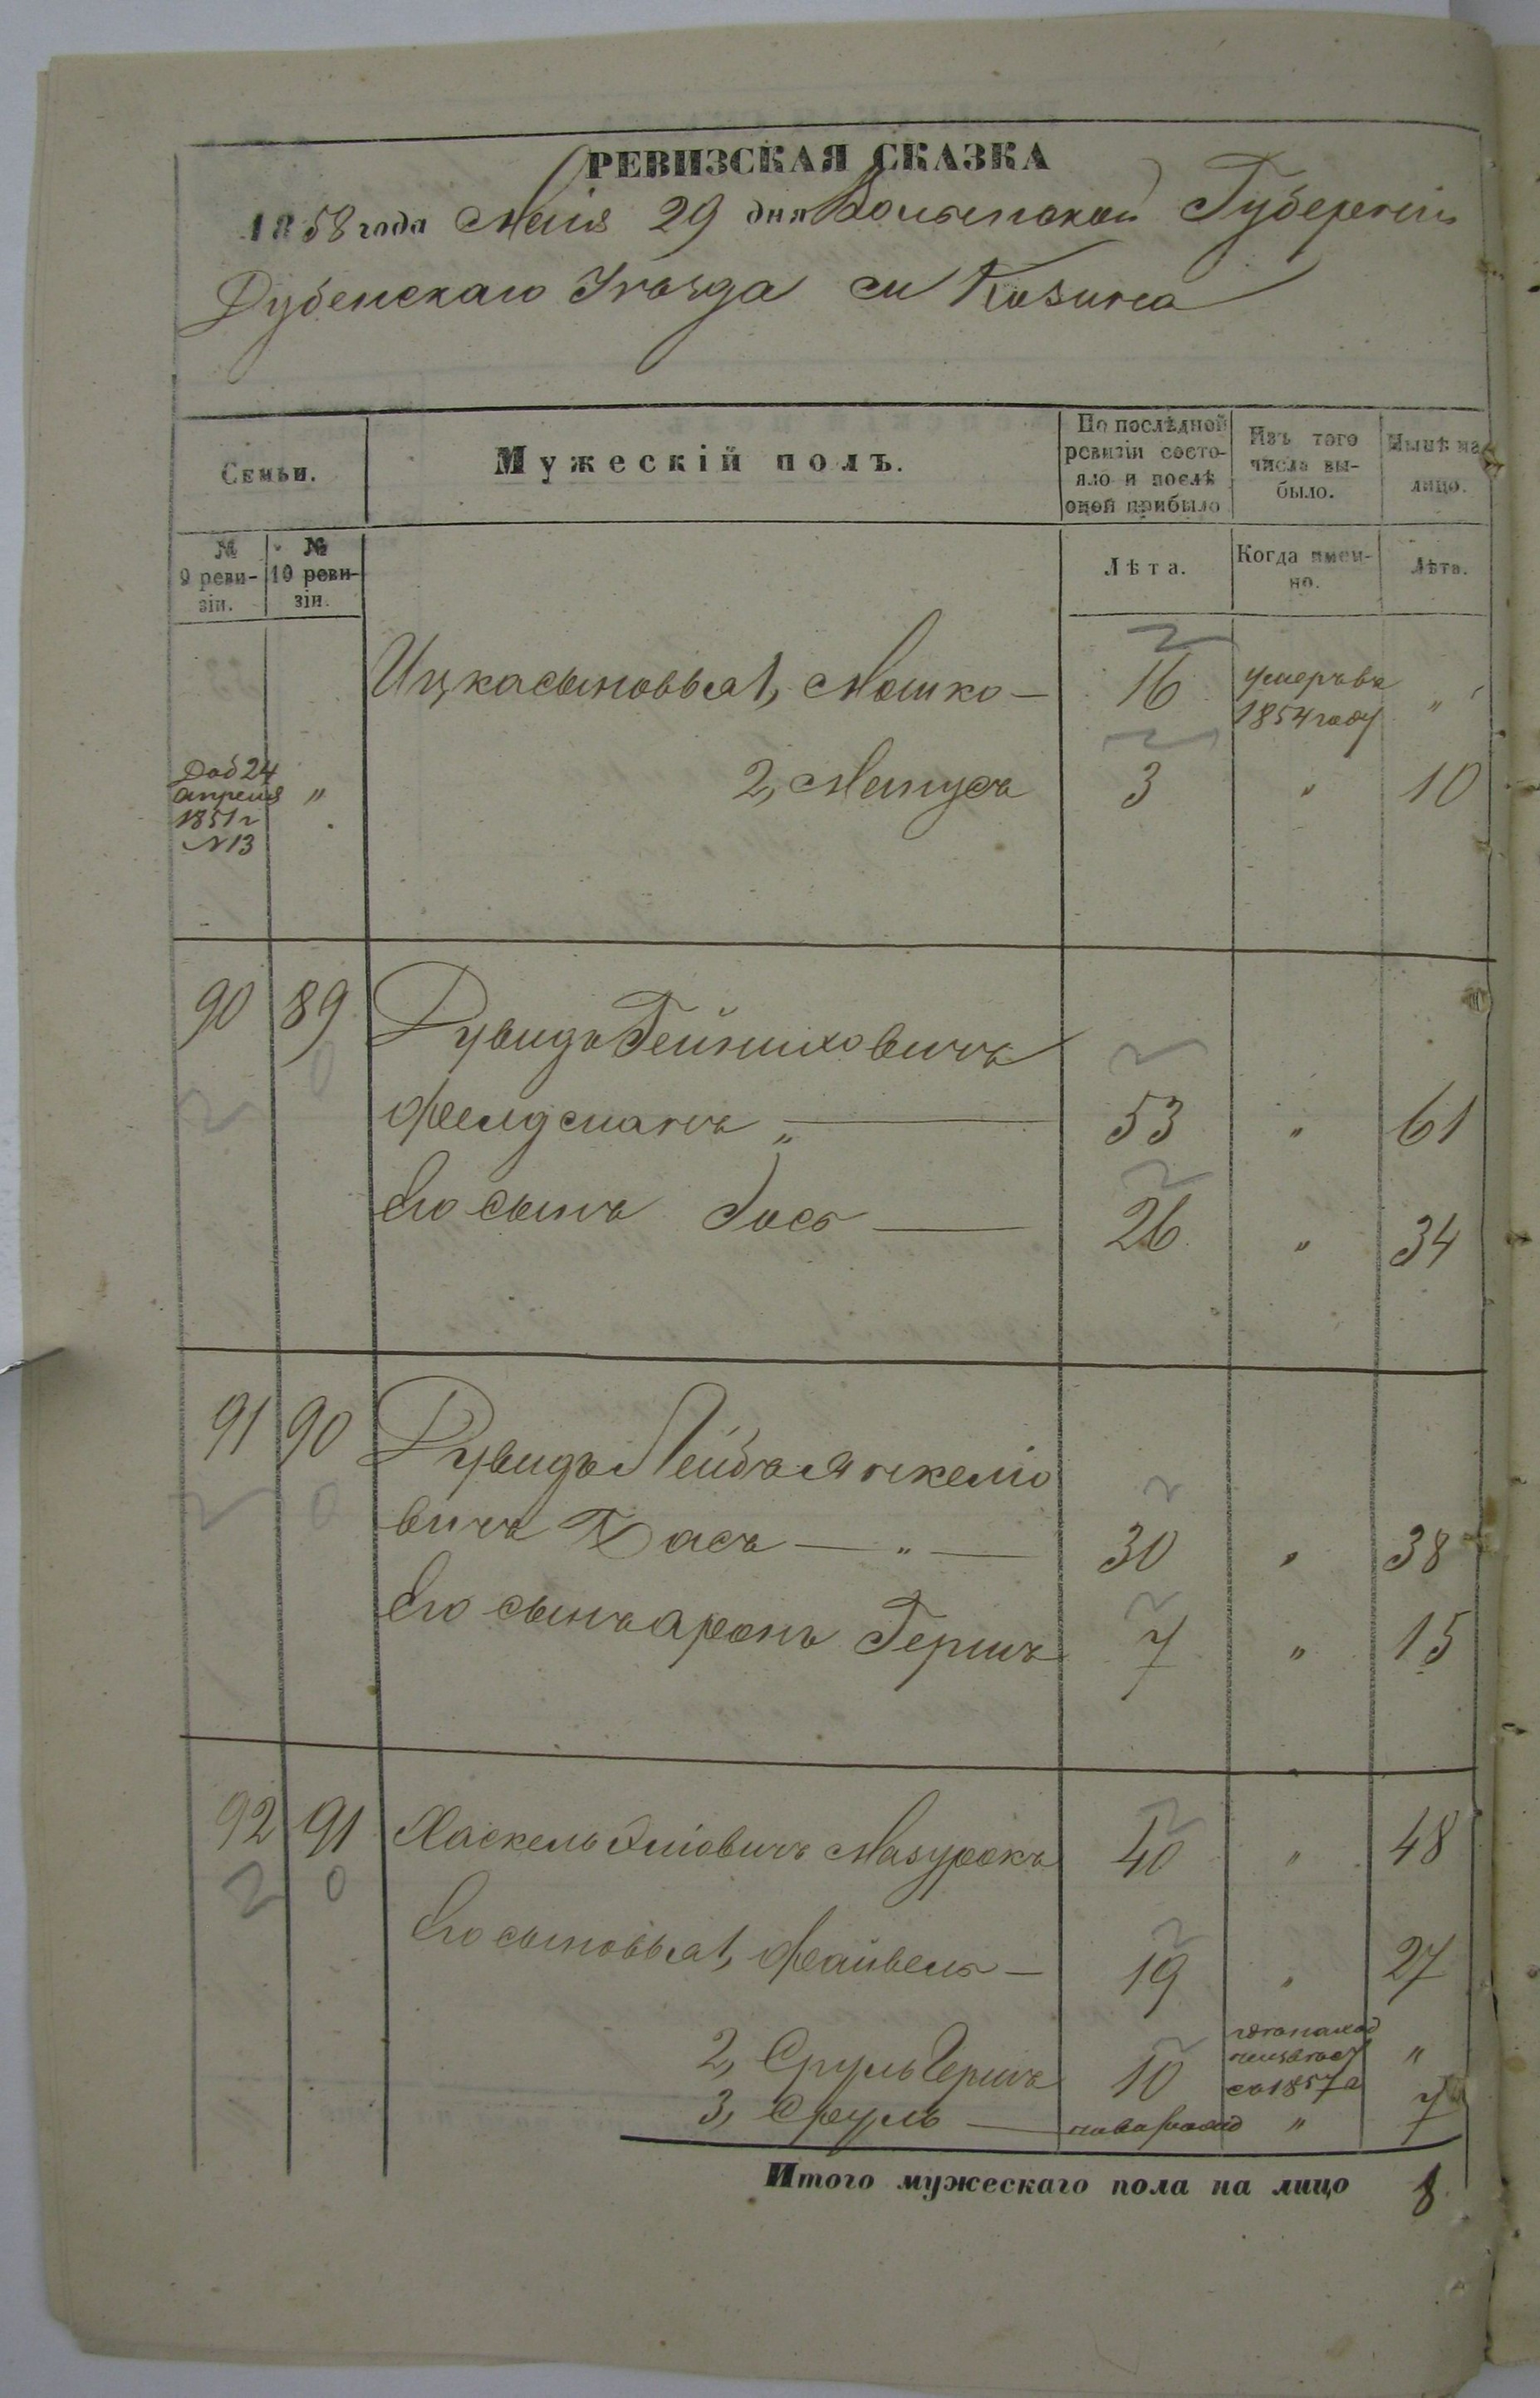 РЕВИЗСКАЯ СКАЗКА
1858 года Маія 29 дня Волынской Губерніи
Дубенскаго Уѣзда м Козина
Семьи.
Мужескій полъ.
По послѣдней ревизіи состо-
яло и послѣ
оной прибыло
Изъ того
числа вы-
было.
Нынѣ на
лицо.
№
9 реви-
зіи.
№
10 реви-
зіи.
Лѣта.
Когда имен-
но.
Лѣта.
Ицка сыновья 1, Мошко — 16 умеръ въ
1854 году "
Доб 24
апреля "
1851 г
N 13
2, Манусъ 3 " 10
90 89 Дувидъ Гейниховичъ
Фелдманъ " — 53 " 61
Его сынъ Іось — 26 " 34
91 90 Дувидъ Лейба Янкеліо
вичъ Басъ — " — 30 " 38
Его сынъ Аронъ Гершъ 7 " 15
92 91 Хаскель Эліовичъ Мазурокъ 40 " 48
Его сыновья 1, Файвель — 19 " 27
2, Сруль Гершъ 10
съ 1857 г "
3, Сруль — новорожд " 7
Итого мужескаго пола на лицо 8